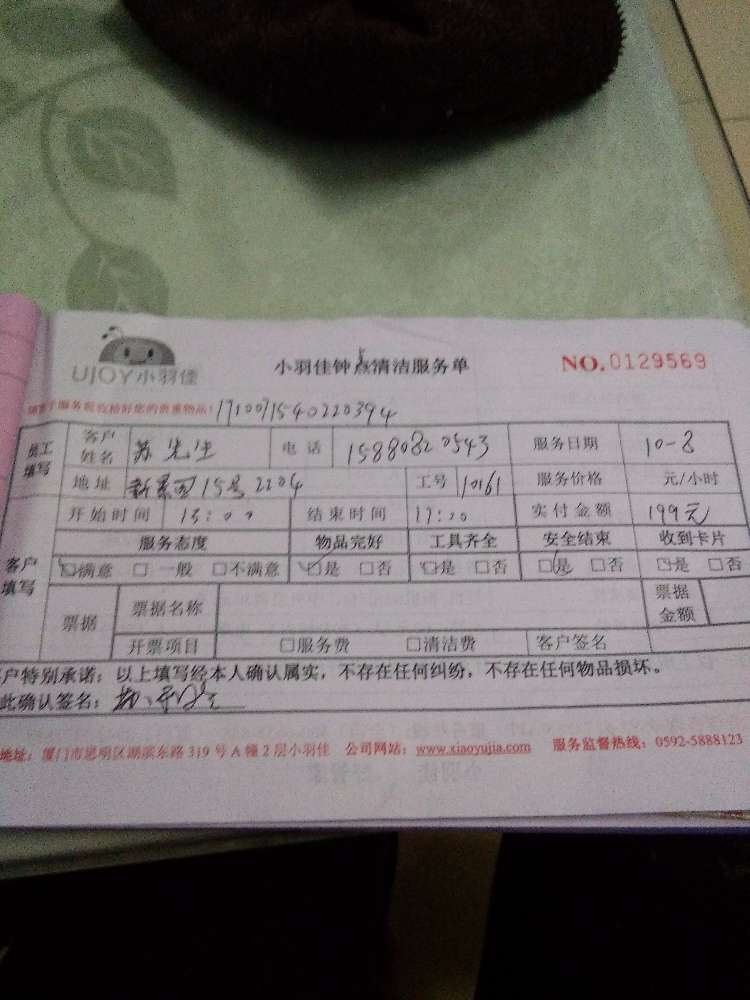 UJOY小羽佳
小羽佳钟点清洁服务单
NO.0129569
1710071540220394
员工填写 客户姓名 苏先生 电话 15880820543 服务日期 10-8
地址 15号2204 工号 10161 服务价格 元/小时
开始时间 15:00 结束时间 17:00 实付金额 199元
客户填写 服务态度 物品完好 工具齐全 安全结束 收到卡片
□满意 □一般 □不满意 □是 □否 □是 □否 □是 □否 □是 □否
票据 票据名称 票据金额
开票项目 □服务费 □清洁费 客户签名
客户特别承诺:以上填写经本人确认属实,不存在任何纠纷,不存在任何物品损坏。
此确认签名:
地址:厦门市思明区湖滨东路319号A幢2层小羽佳 公司网站:www.xiaoyujia.com 服务监督热线:0592-5888123